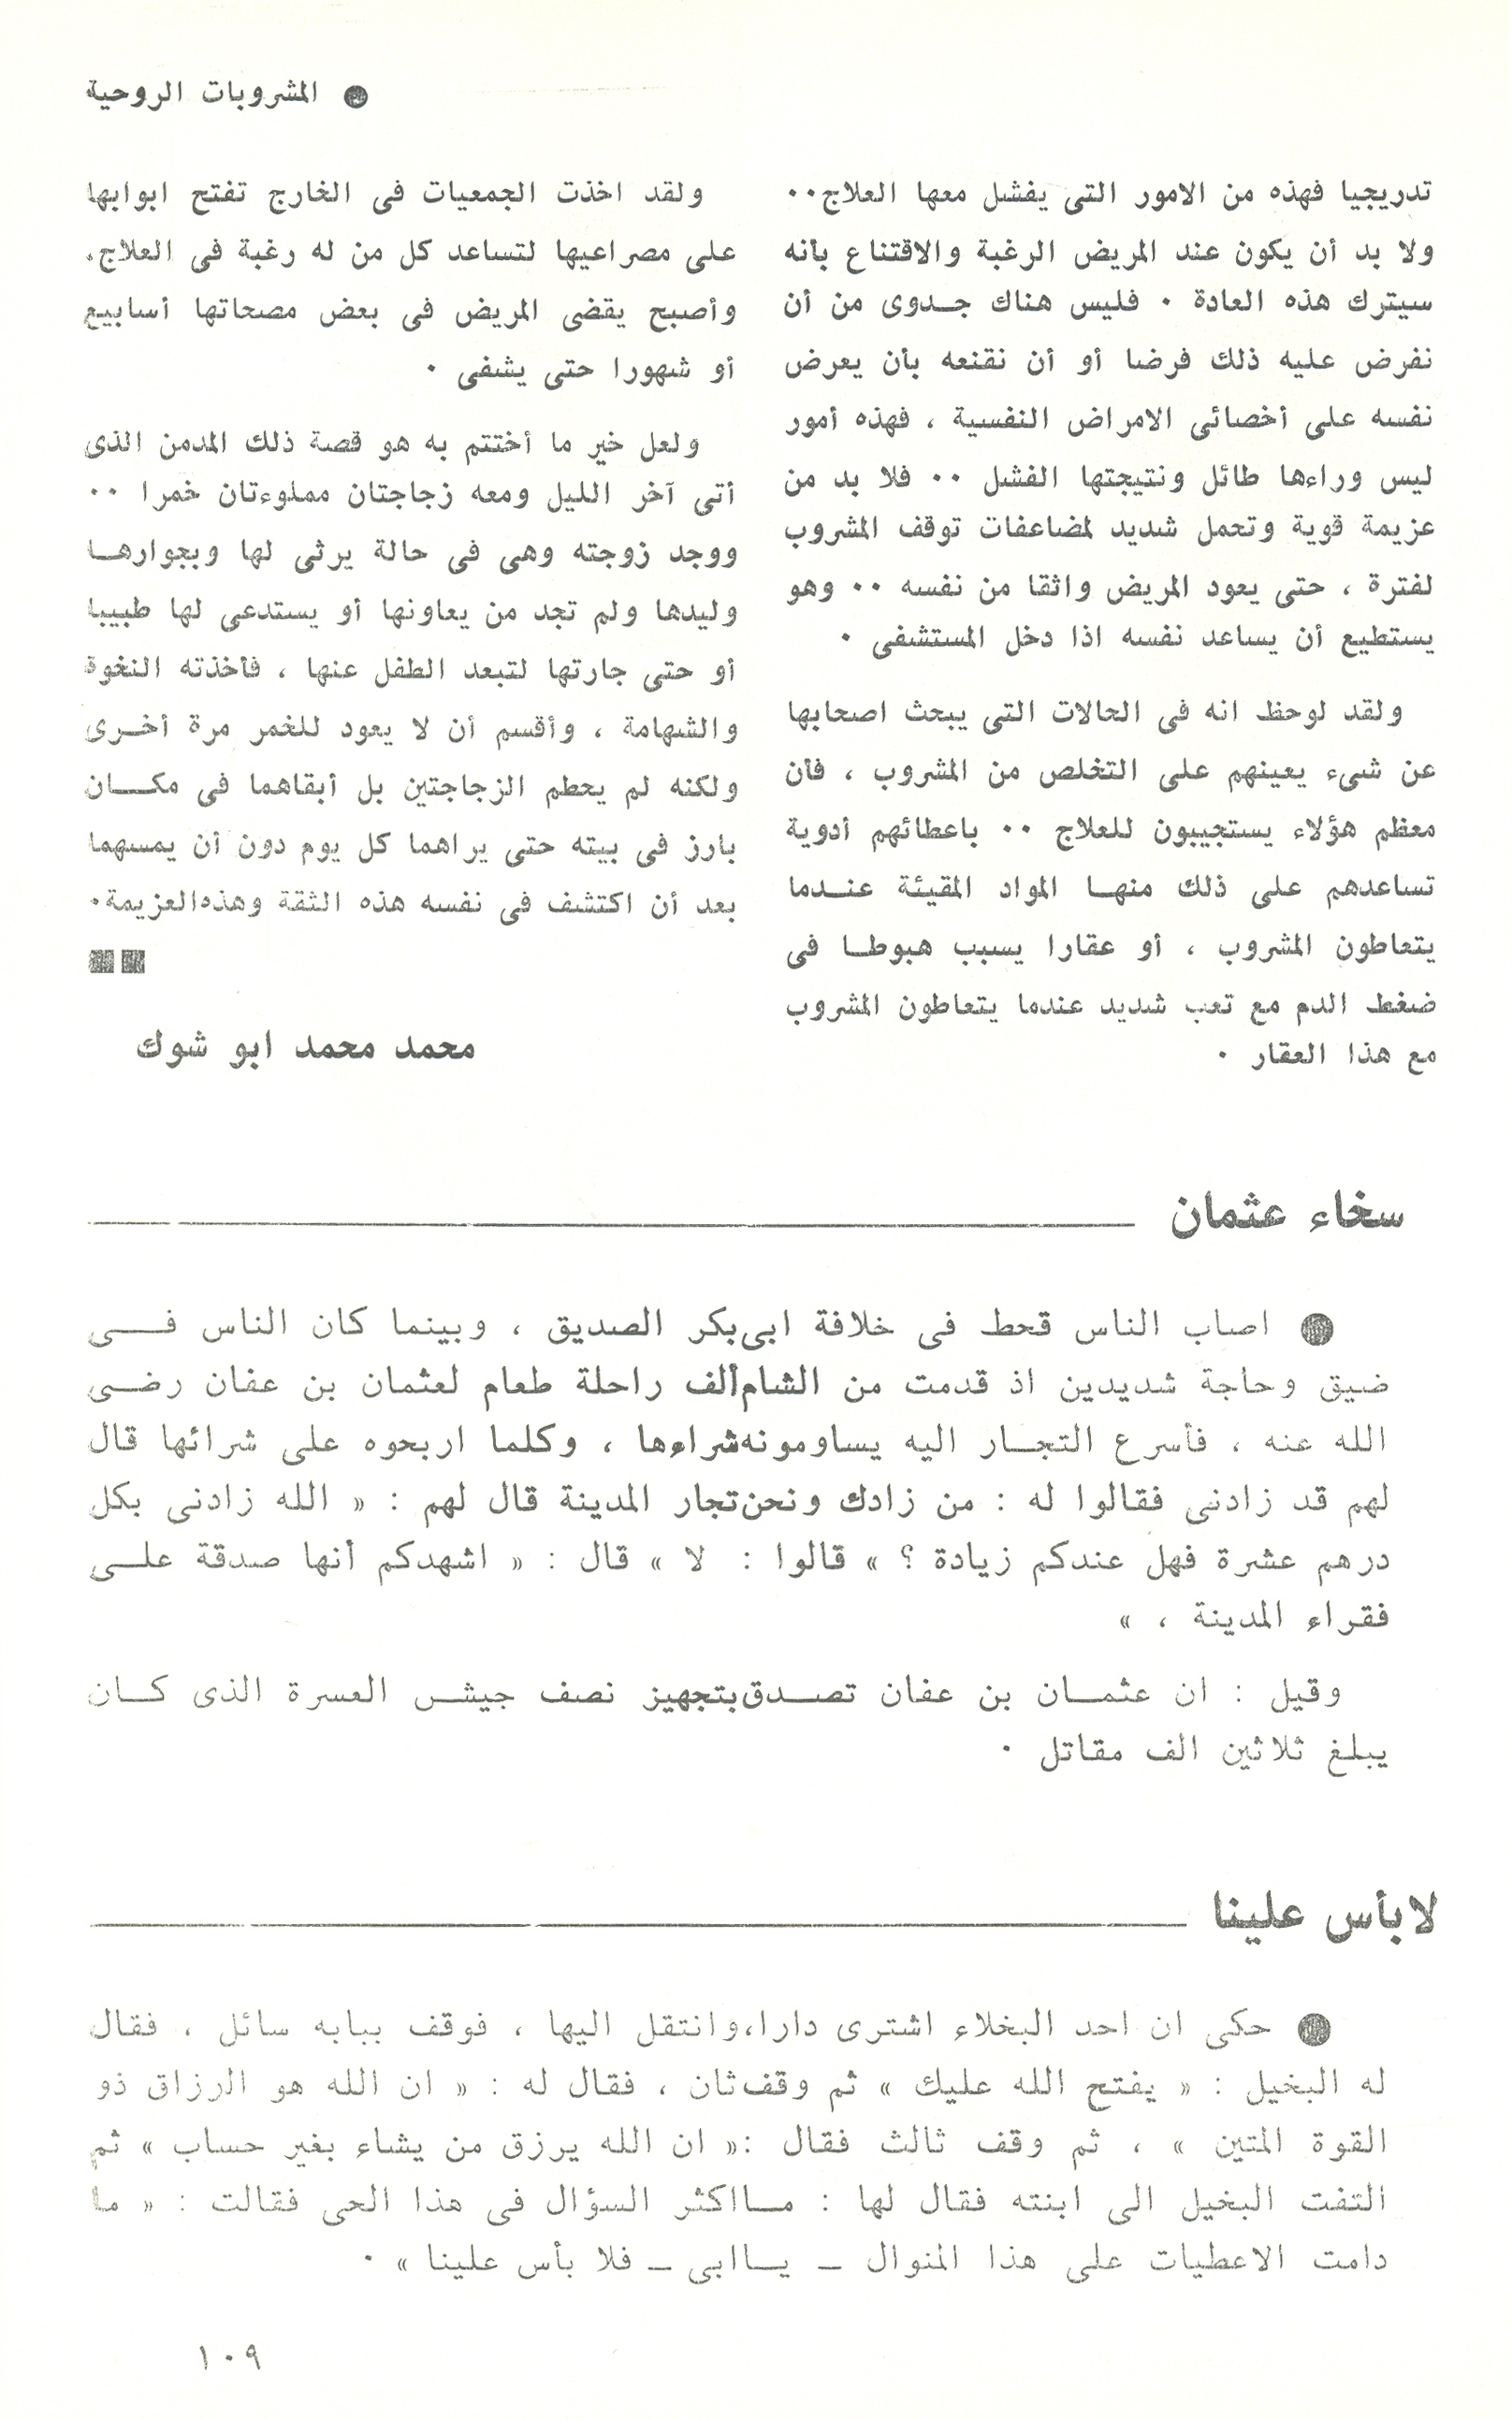 ● المشروبات الروحية
تدريجيا فهذه من الامور التى يفشل معها العلاج٠٠
ولا بد أن يكون عند المريض الرغبة والاقتناع بأنه
سيترك هذه العادة ٠ فليس هناك جـدوى من أن
نفرض عليه ذلك فرضا أو أن نقنعه بأن يعرض
نفسه على أخصائى الامراض النفسية ، فهذه أمور
ليس وراءها طائل ونتيجتها الفشل ٠٠ فلا بد من
عزيمة قوية وتحمل شديد لمضاعفات توقف المشروب
لفترة ، حتى يعود المريض واثقا من نفسه ٠٠ وهو
يستطيع أن يساعد نفسه اذا دخل المستشفى ٠
ولقد لوحظ انه فى الحالات التى يبحث اصحابها
عن شىء يعينهم على التخلص من المشروب ، فأن
معظم هؤلاء يستجيبون للعلاج ٠٠ باعطائهم أدوية
تساعدهم على ذلك منهـا المواد المقيئة عنـدما
يتعاطون المشروب ، أو عقارا يسبب هبوطـا فى
ضغط الدم مع تعب شديد عندما يتعاطون المشروب
مع هذا العقار ٠
ولقد اخذت الجمعيات فى الخارج تفتح ابوابها
على مصراعيها لتساعد كل من له رغبة فى العلاج٠
وأصبح يقضى المريض فى بعض مصحاتها أسابيع
أو شهورا حتى يشفى ٠
ولعل خير ما أختتم به هو قصة ذلك المدمن الذى
أتى آخر الليل ومعه زجاجتان مملوءتان خمرا ٠٠
ووجد زوجته وهى فى حالة يرثى لها وبجوارهـا
وليدها ولم تجد من يعاونها أو يستدعى لها طبيبا
أو حتى جارتها لتبعد الطفل عنها ، فأخذته النخوة
والشهامة ، وأقسم أن لا يعود للخمر مرة أخـرى
ولكنه لم يحطم الزجاجتين بل أبقاهما فى مكـــان
بارز فى بيته حتى يراهما كل يوم دون أن يمسهما
بعد أن اكتشف فى نفسه هذه الثقة وهذه العزيمة٠
■■
محمد محمد ابو شوك
سخاء عثمان
● اصاب الناس قحط فى خلافة ابى بكر الصديق ، وبينما كان الناس فـــى
ضيق وحاجة شديدين اذ قدمت من الشام ألف راحلة طعام لعثمان بن عفان رضـى
الله عنه ، فأسرع التجـار اليه يساومونه شراءها ، وكلما اربحوه على شرائها قال
لهم قد زادنى فقالوا له : من زادك ونحن تجار المدينة قال لهم : « الله زادنى بكل
درهم عشرة فهل عندكم زيادة ؟ » قالوا : لا » قال : « اشهدكم أنها صدقة علـى
فقراء المدينة ، »
وقيل : ان عثمـان بن عفان تصـدق بتجهيز نصف جيشـ العسرة الذى كـان
يبلـغ ثلاثين الف مقاتل ٠
لا بأس علينا
● حكى ان احد البخلاء اشترى دارا، وانتقل اليها ، فوقف ببابه سائل ، فقال
له البخيل : « يفتح الله عليك » ثم وقف ثان ، فقال له : « ان الله هو الرزاق ذو
القوة المتين » ، ثم وقف ثالث فقال :« ان الله يرزق من يشاء بغير حساب » ثم
التفت البخيل الى ابنته فقال لها : مــا اكثر السؤال فى هذا الحى فقالت : « ما
دامت الاعطيات على هذا المنوال ـ يــا ابى ـ فلا بأس علينا » ٠
١٠٩